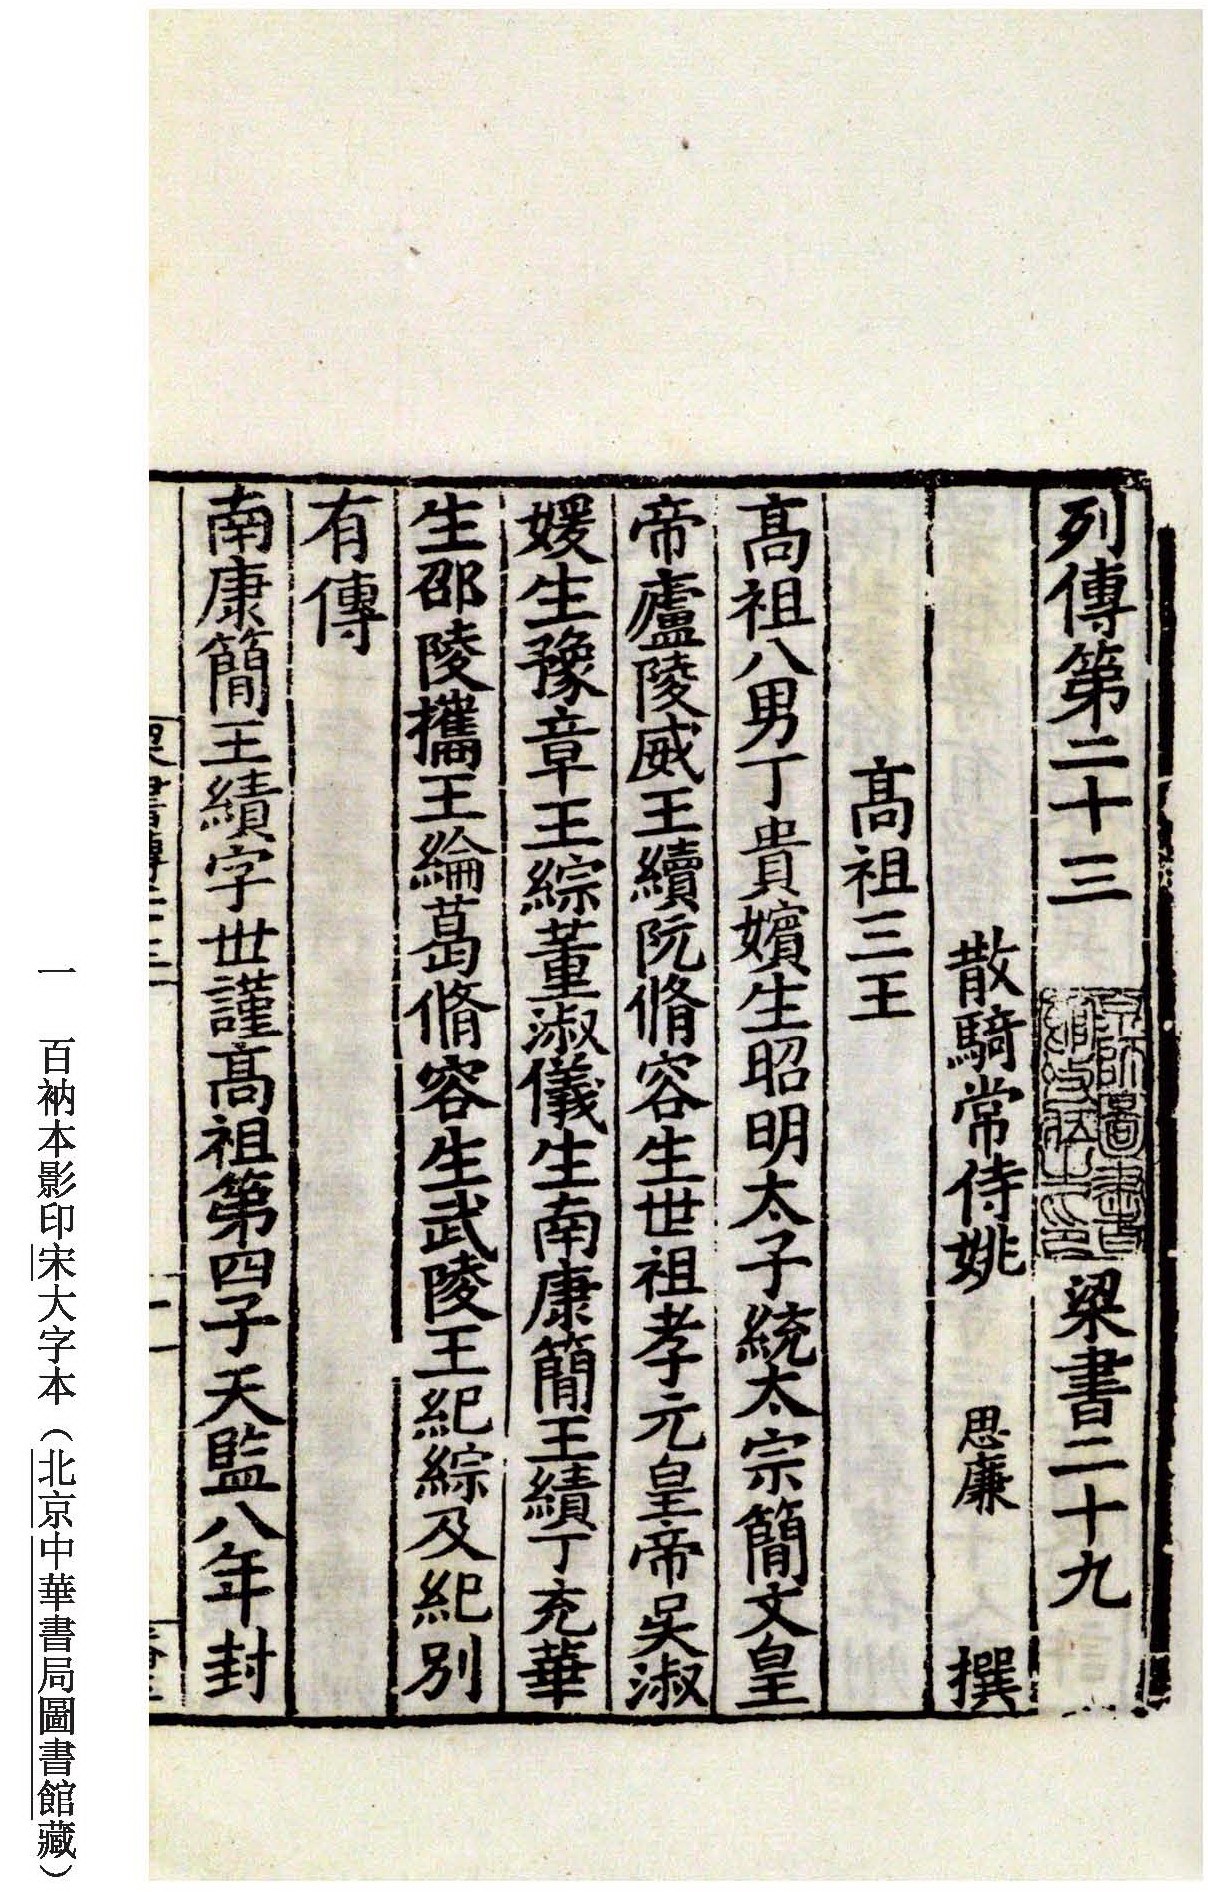 列傳第二十三 京師圖書館收藏之印 梁書二十九
散騎常侍姚 思廉 撰
髙祖三王
髙祖八男丁貴嬪生昭明太子統太宗簡文皇
帝廬陵威王續阮脩容生世祖孝元皇帝吳淑
媛生豫章王綜董淑儀生南康簡王績丁充華
生邵陵攜王綸葛脩容生武陵王紀綜及紀別
有傳
南康簡王績字世謹髙祖第四子天監八年封
一 百衲本影印宋大字本（北京中華書局圖書館藏）